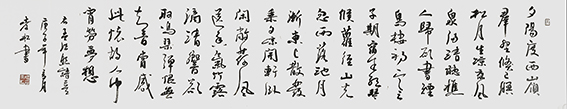 夕陽度西嶺
群壑倏已暝
松月生涼夜風
泉滿清聽樵
人歸欲盡煙
鳥棲初定之
子期宿來孤琴
候蘿徑山光
忽西落池月
漸東上散髮
乘夕涼開軒臥
閑敞荷風
送香氣竹露
滴清響欲
取鳴琴彈恨無
知音賞感
此懷故人中
宵勞夢想
孟浩然詩
書